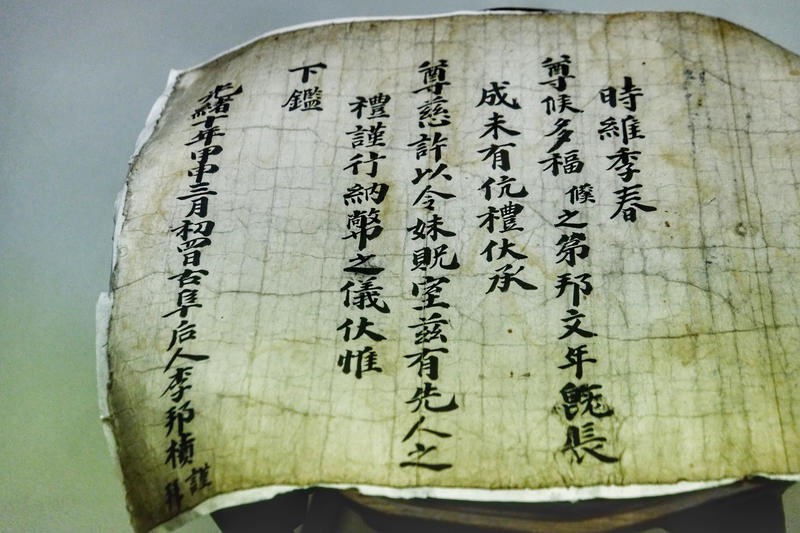 時維季春
尊候多福僕之第邦文年旣長
成未有伉禮伏承
尊慈許以令妹貺室茲有先人之
禮謹行納幣之儀伏惟
下鑑
光緖十年甲申三月初四日古阜后人李邦楨謹拜